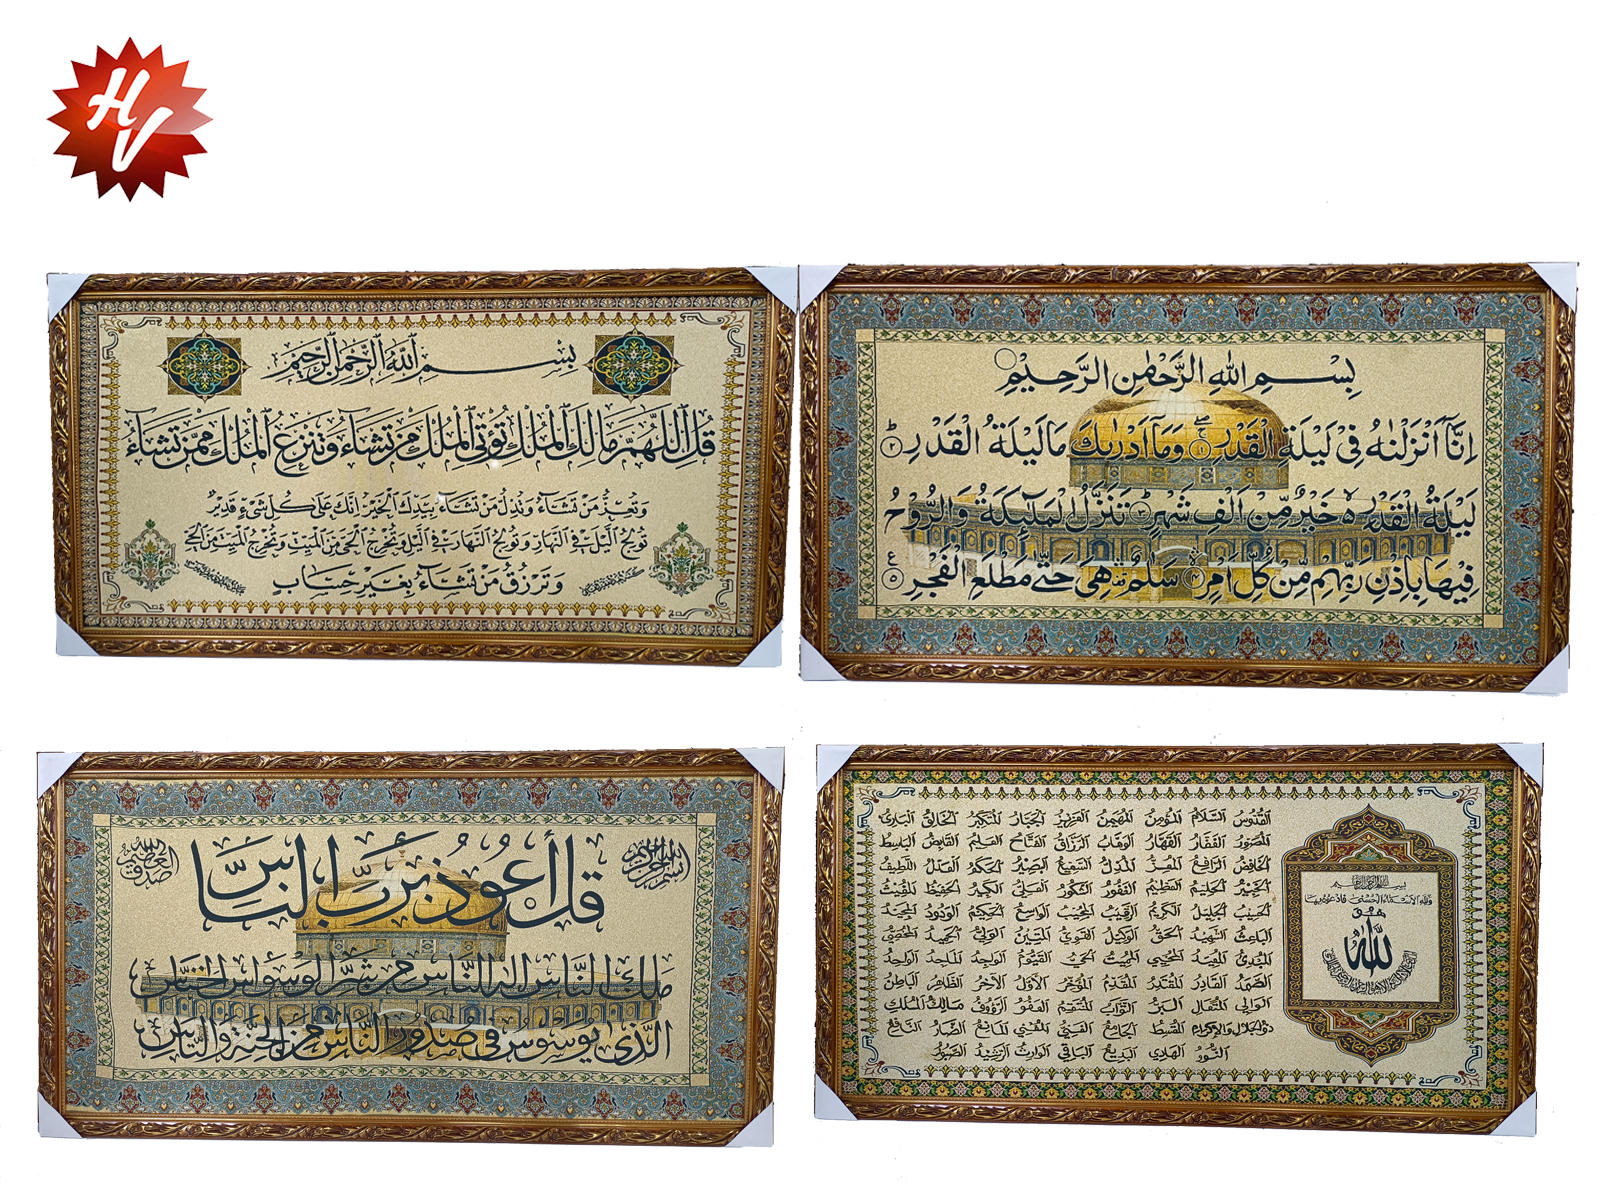 HV
بسم الله الرحمن الرحيم
قل اللهم مالك الملك تؤتي الملك من تشاء وتنزع الملك ممن تشاء
وتعز من تشاء وتذل من تشاء بيدك الخير انك على كل شيء قدير
تولج الليل في النهار وتولج النهار في الليل وتخرج الحي من الميت وتخرج الميت من الحي
وترزق من تشاء بغير حساب
بِسْمِ اللهِ الرَّحْمٰنِ الرَّحِيْمِ
اِنَّآ اَنْزَلْنٰهُ فِيْ لَيْلَةِ الْقَدْرِ ۝١ وَمَآ اَدْرٰىكَ مَا لَيْلَةُ الْقَدْرِ ۝٢
لَيْلَةُ الْقَدْرِ ەۙ خَيْرٌ مِّنْ اَلْفِ شَهْرٍ ۝٣ تَنَزَّلُ الْمَلٰٓىِٕكَةُ وَالرُّوْحُ
فِيْهَا بِاِذْنِ رَبِّهِمْ مِّنْ كُلِّ اَمْرٍ ۝٤ سَلٰمٌ هِيَ حَتّٰى مَطْلَعِ الْفَجْرِ ۝٥
بسم الله الرحمن الرحيم
قل أعوذ برب الناس
صدق الله العظيم
ملك الناس اله الناس من شر الوسواس الخناس
الذي يوسوس في صدور الناس من الجنة والناس
القدوس السلام المؤمن المهيمن العزيز الجبار المتكبر الخالق البارئ
المصور الغفار القهار الوهاب الرزاق الفتاح العليم القابض الباسط
الخافض الرافع المعز المذل السميع البصير الحكم العدل اللطيف
الخبير الحليم العظيم الغفور الشكور العلي الكبير الحفيظ المقيت
الحسيب الجليل الكريم الرقيب المجيب الواسع الحكيم الودود المجيد
الباعث الشهيد الحق الوكيل القوي المتين الولي الحميد المحصي
المبدئ المعيد المحيي المميت الحي القيوم الواجد الماجد الواحد
الصمد القادر المقتدر المقدم المؤخر الأول الآخر الظاهر الباطن
الوالي المتعال البر التواب المنتقم العفو الرؤوف مالك الملك
ذو الجلال والإكرام المقسط الجامع الغني المغني المانع الضار النافع
النور الهادي البديع الباقي الوارث الرشيد الصبور
بسم الله الرحمن الرحيم
ولله الاسماء الحسنى فادعوه بها
هو
الله